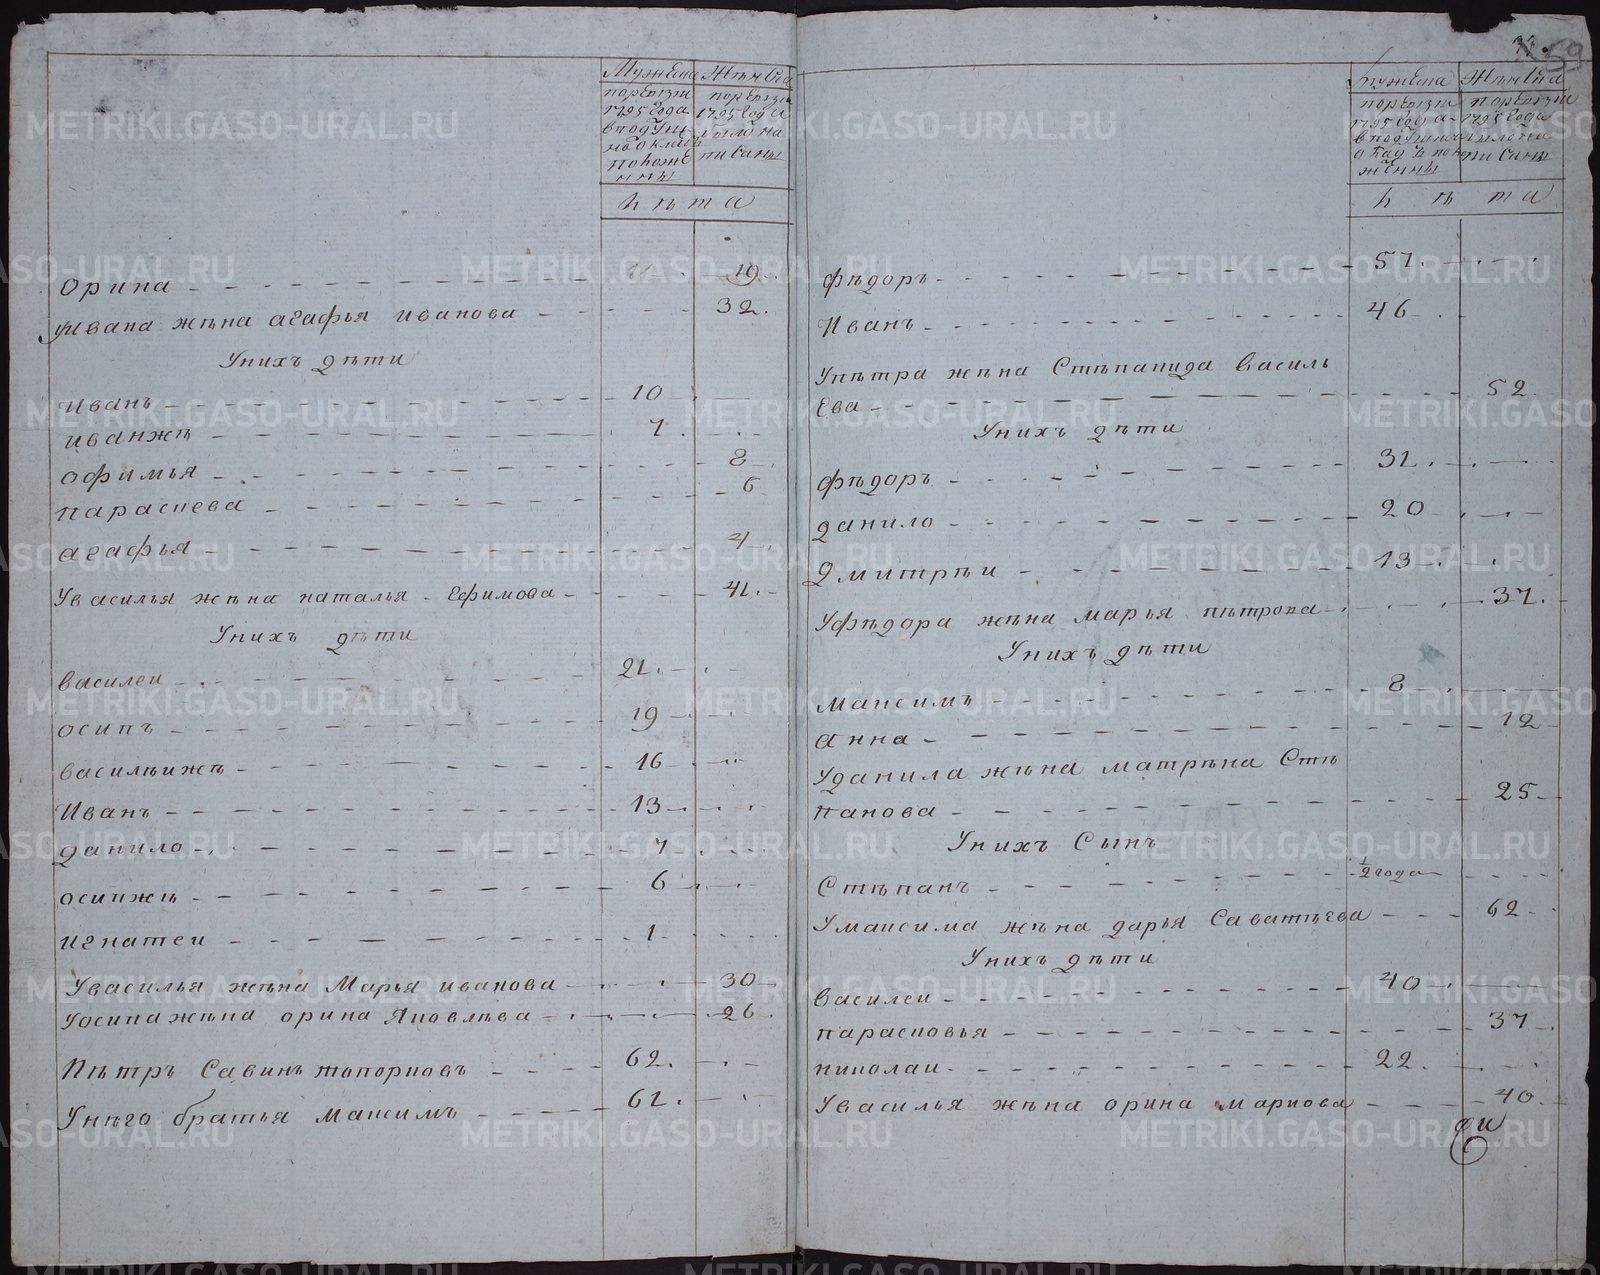 Мужеска Женска
по ревизии по ревизии
1795 года 1795 года
в подуш- было на
ной оклад писаны
положе
нны
лѣта
Орина 19
У Ивана жѣна агафья иванова 32.
У нихъ дѣти
Иванъ 10
иванжѣ 7.
офимья 8
параскева 6
агафья 4
У василья жѣна наталья Ефимова 41.
У нихъ дѣти
василеи 21.
осипъ 19
василѣижѣ 16
Иванъ 13
данило 7
осипжѣ 6
игнатеи 1
У василья жѣна Марья иванова 30
У осипа жѣна орина Яковлѣва 26
Пѣтръ Савинъ топорковъ 62.
У нѣго братья максимъ 61.
33.
59
мужеска Женска
по ревизии по ревизии
1795 года 1795 года
в подушной было на
оклад поло писаны
женны
лѣта
фѣдоръ 51.
Иванъ 46
У пѣтра жѣна Стѣпанида василь
Ева 52
У нихъ дѣти
фѣдоръ 31.
данило 20
дмитрѣи 13
У фѣдора жѣна марья пѣтрова 31.
У нихъ дѣти
максимъ 8
анна 12
У данила жѣна матрѣна Стѣ
панова 25
У нихъ Сынъ
Стѣпанъ 1/2 года
У максима жѣна дарья Саватѣева 62
У нихъ дѣти
василеи 40
парасковья 31
николаи 22.
У василья жѣна орина маркова 40.
METRIKI.GASO-URAL.RU